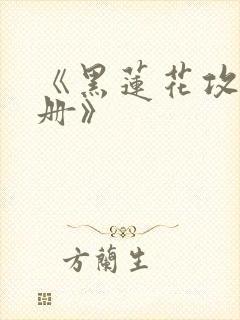 《黑蓮花攻
册》
方蘭生